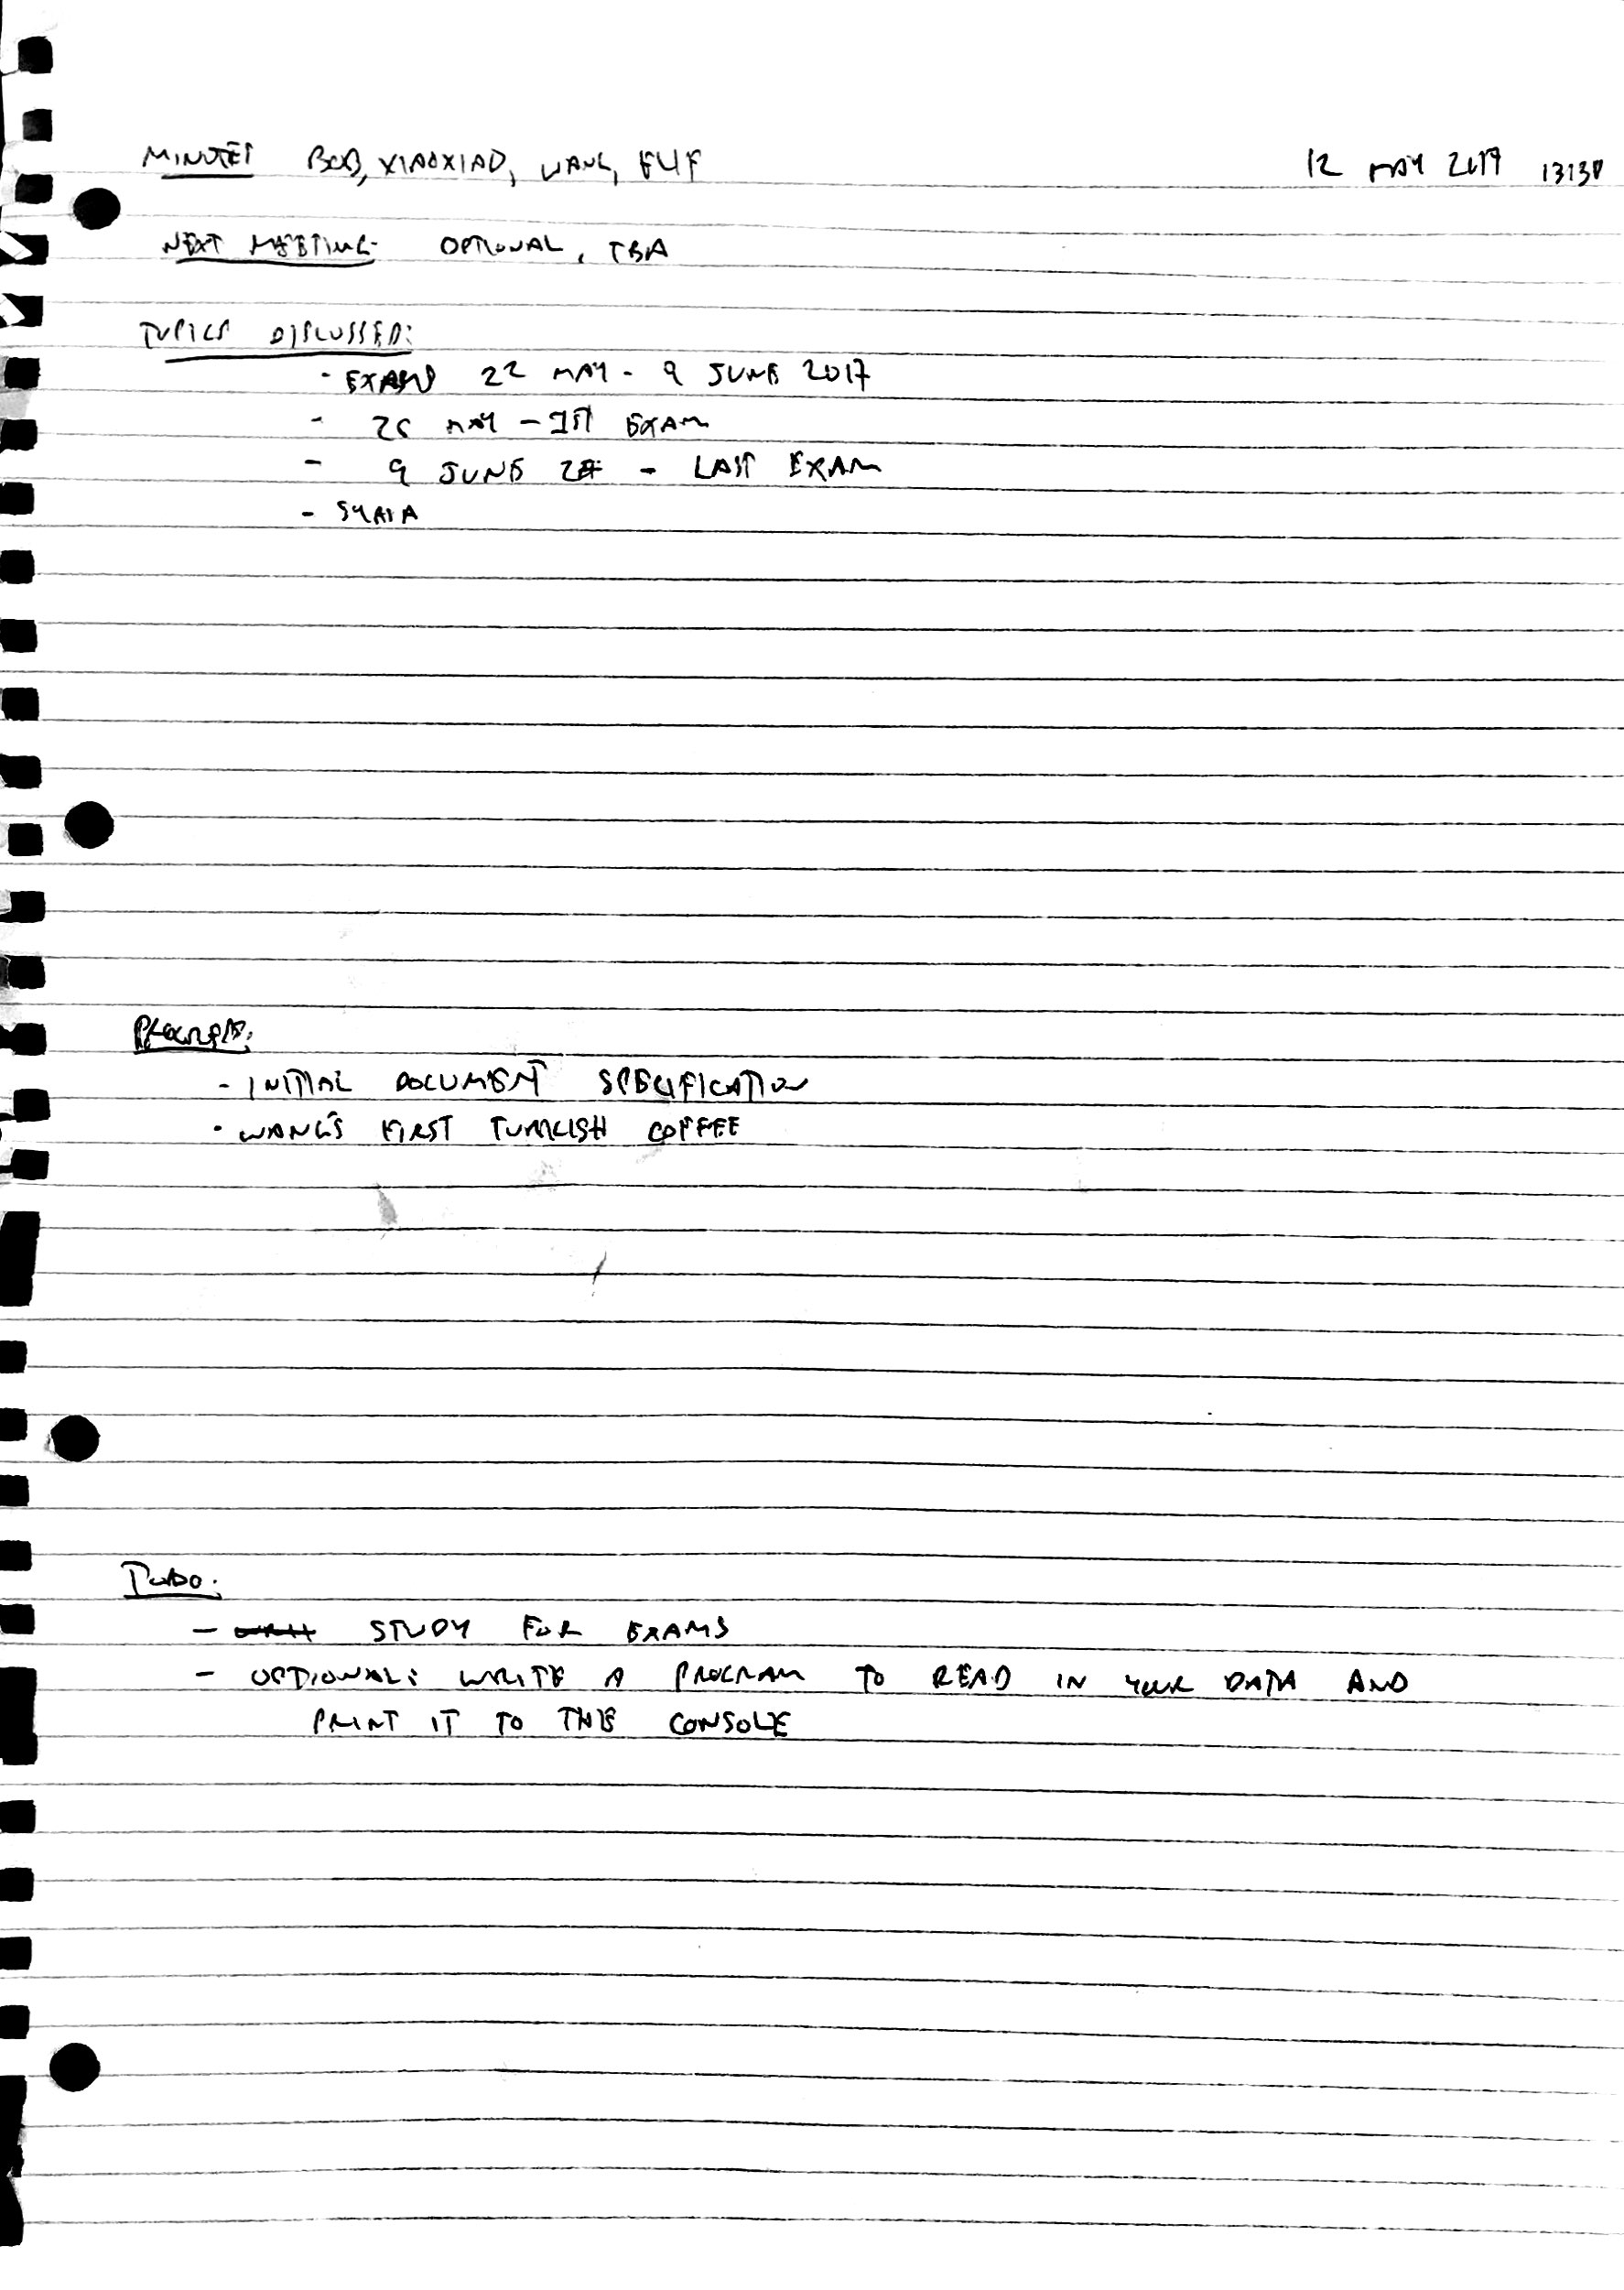 MINUTES BOB, XIAOXIAO, WANG, ELIF 12 MAY 2017 13:30
NEXT MEETING: OPTIONAL, TBA
TOPICS DISCUSSED:
- EXAMS 22 MAY - 9 JUNE 2017
- MAY - 1ST EXAM
- 9 JUNE - LAST EXAM
- SYRIA
PROGRESS:
- INITIAL DOCUMENT SPECIFICATION
- WANG'S FIRST TURKISH COFFEE
TODO:
- STUDY FOR EXAMS
- OPTIONAL: WRITE A PROGRAM TO READ IN YOUR DATA AND
PRINT IT TO THE CONSOLE